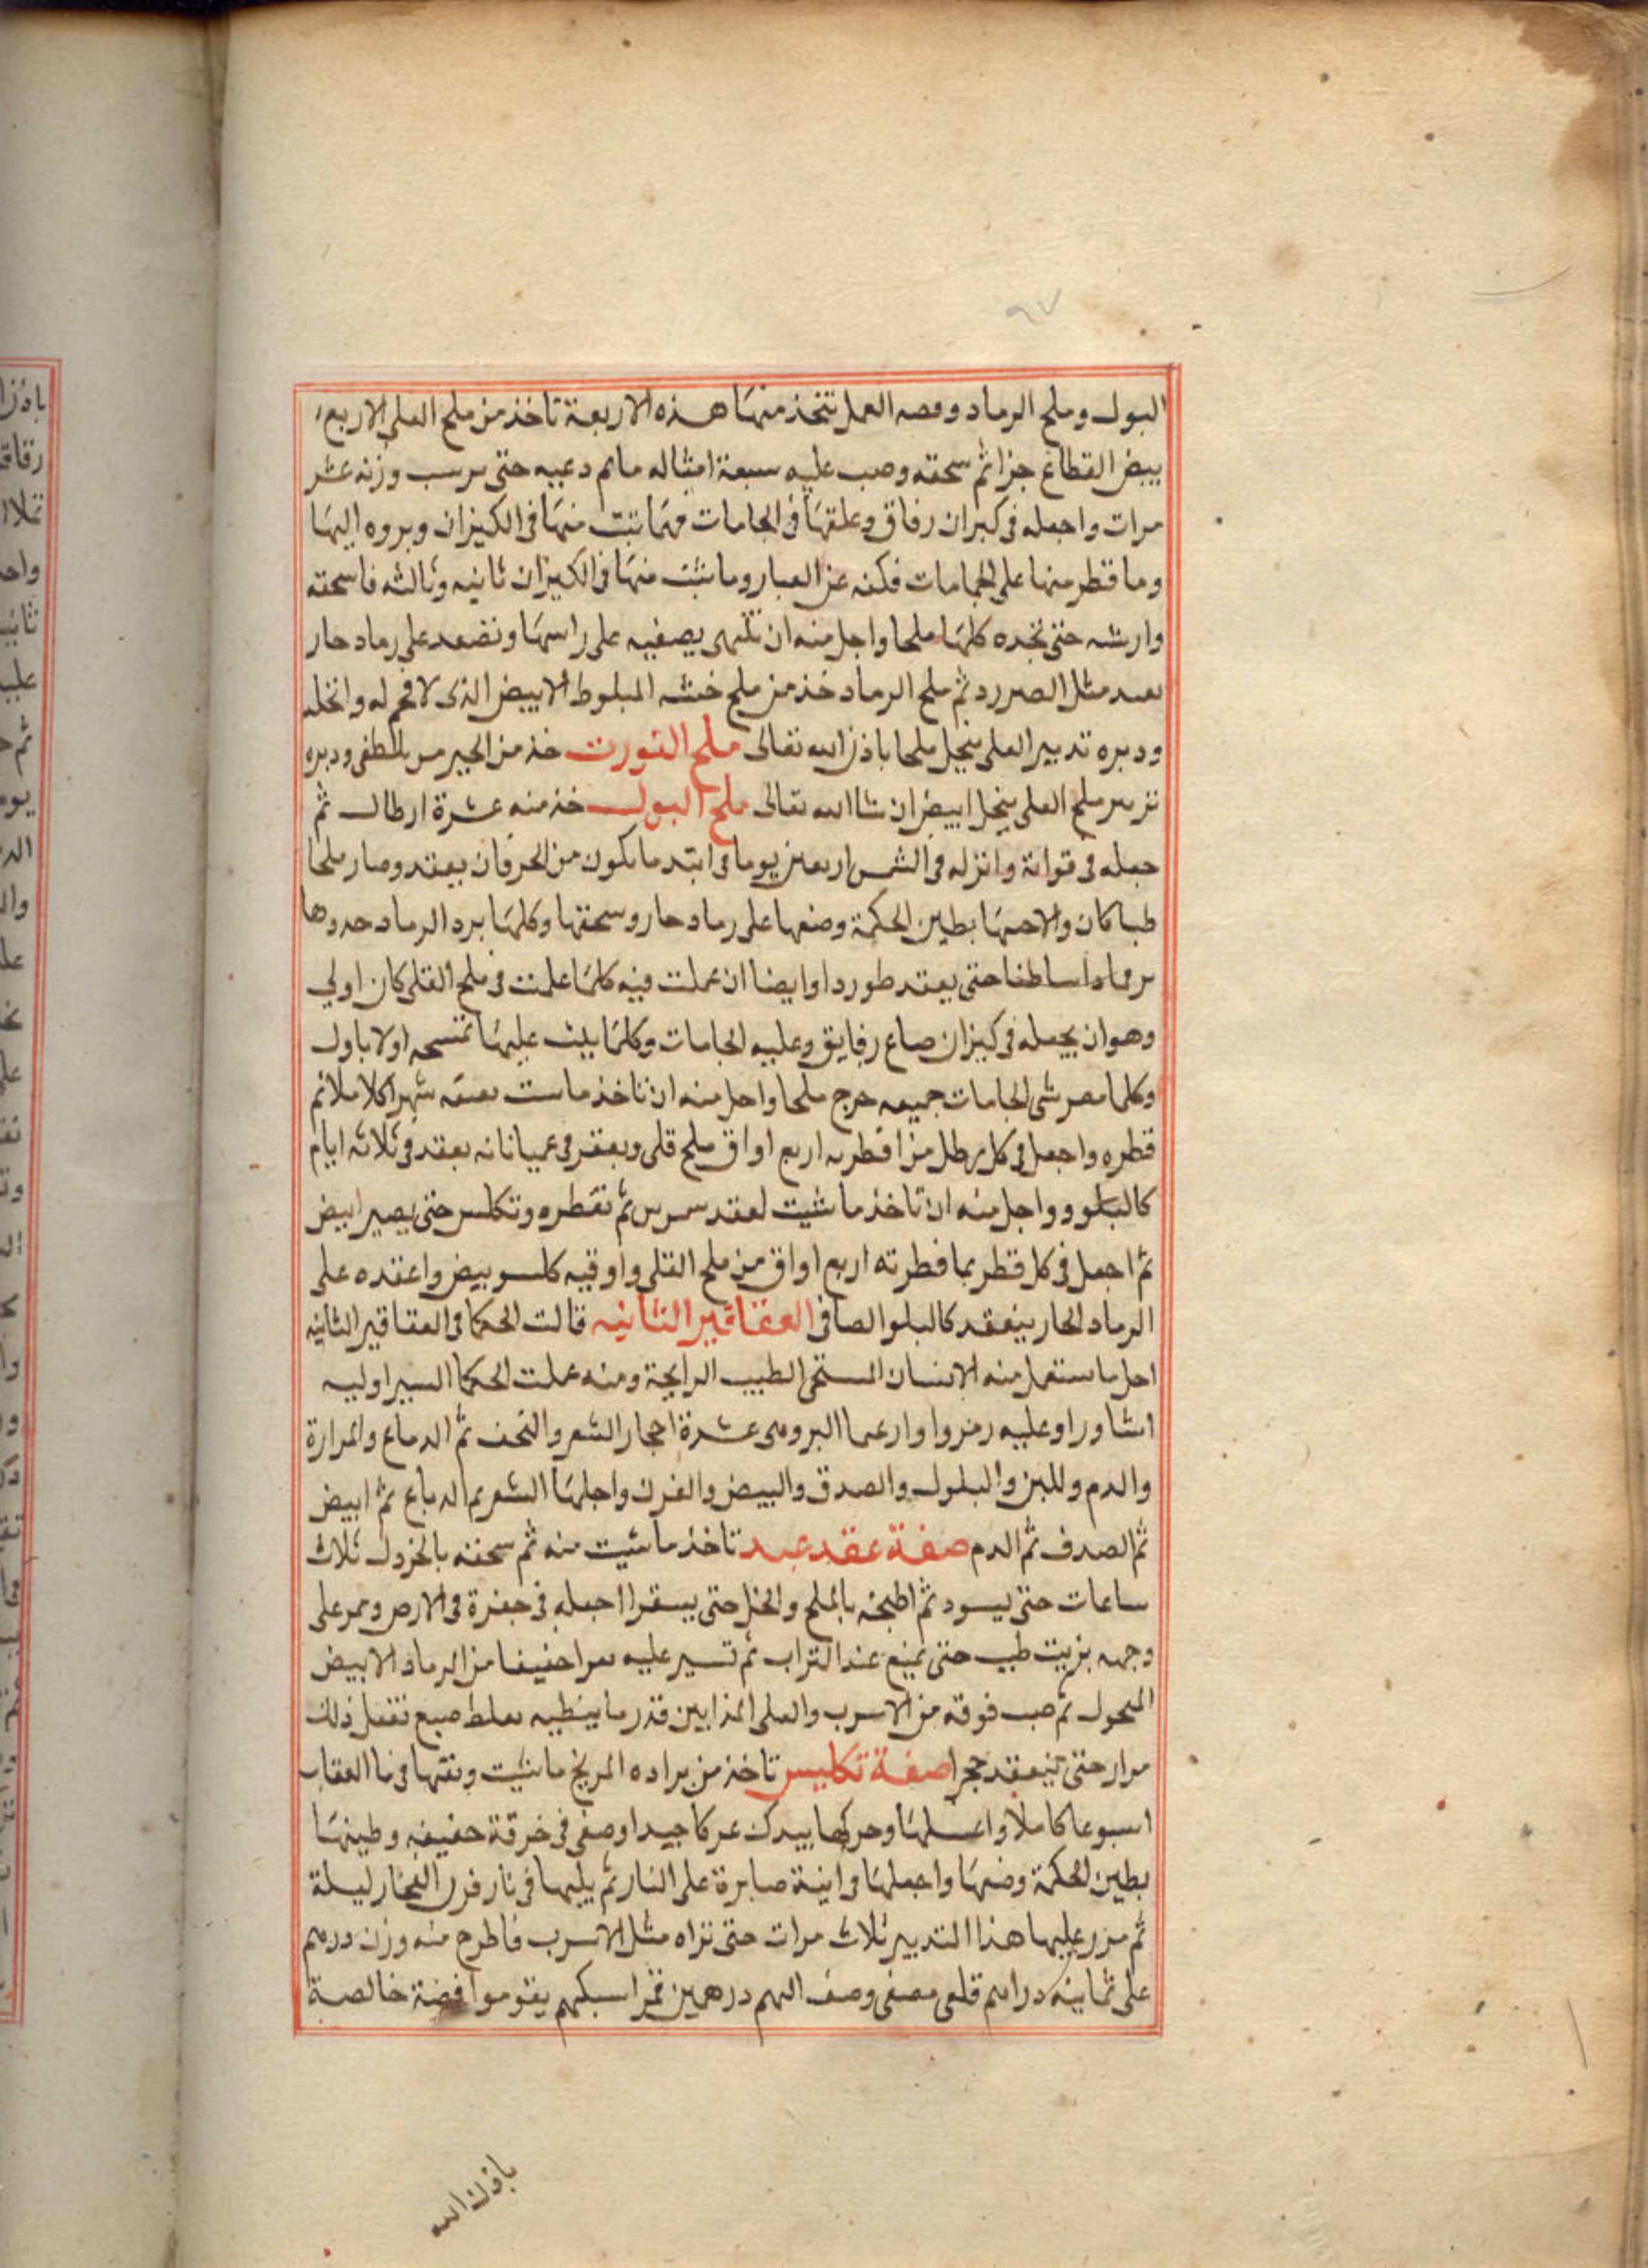 ٩٧
البول وملح الرماد وصه العمل تتخذ منها هذه الاربعة تاخذ من ملح العلى الاربع
بيض القطاع جزا ثم سحقه وصب عليه سبعة امثاله ما ثم دعيه حتى يرسب وزنه عشر
مرات واجعله فى كيزان رقاق وعلقها فى الجامات فهما تبت منها فى الكيزان وبروه اليها
وما قطر منها على الجامات فكنه عن الغبار وما ثبت منها فى الكيزان ثانيه وثالثه فاسحقه
وارشه حتى تجده كلها ملحا واجل منه ان يصفيه على راسها وتضعد على رماد حار
مثل ثم ملح الرماد خذ من ملح خشبه البلوط الابيض الذى لا فحم له وانخله
ودبره تدبير العلى ينحل ملحا باذن الله تعالى ملح النورت خذ من الجير المطفى ودبره
ملح العلى ينحل ابيض ان شا الله تعالى ملح البول خذ منه عشرة ارطال ثم
جعله فى قوانة وانزله فى الشمس اربعين يوما فى ابتد ما يكون من الحر فان يعقد وصار ملحا
طبا كان والا بطين الحكمة وضعها على رماد حار وسحقها وكلما برد الرماد
حتى يعقد طوردا وايضا ان عملت فيه كلما علمت فى ملح القلى كان اولى
وهو ان يجعله فى كيزان صاع رقايق وعليه الجامات وكلما عليها اولا باول
وكلما الجامات جميعه خرج ملحا واجل منه ان تاخذ ما شهرا كلاملا ثم
قطره واجعل فى كل رطل من اربع اواق ملح قلى ويعقد فى عميا نانه يعقد فى ثلاثه ايام
كالبلور واجل منه ان تاخذ ما شيت ثم تقطره وتكلس حتى يصير ابيض
ثم اجعل فى كل قطر بما قطرته اربع اواق من ملح القلى واوقيه كلس وبيض واعقده على
الرماد الحار ينعقد كالبلو الصافى العقاقير الثانيه قالت الحكما فى العقاقير الثانيه
اجل ما ستعمل منه الانسان الستحى الطيب الرايحة ومنه عملت الحكما السير اوليه
اشاورا وعليه رمزوا عشرة احجار الشعر والقحف ثم الدماع والمرارة
والدم وللبن والبلول والصدف والبيض والقرن واجلها الشعر ثم الدماع ثم ابيض
ثم الصدف ثم الدم صفة عقد عبد تاخذ ما شيت منه ثم سحقه بالخردل ثلاث
ساعات حتى يسود ثم اطبخه بالملح والخل حتى اجعله فى حفرة فى الارض ومر على
وجهه بزيت طيب حتى يمنع عند التراب ثم تسير عليه من الرماد الابيض
المنحول ثم صب فوقه من الاسرب والعلى المذابين قدر ما يغطيه بغلط صبع تفعل ذلك
مرار حتى ينعقد حجرا صفة تكليس تاخذ من براده المريخ ما شيت ونقها فى ما العقاب
اسبوعا كاملا واغسلها وحركها بيدك عركا جيدا وصفى فى خرقة خفيفه وطينها
بطين الحكمة وضمها واجعلها فى انية صابرة على النار ثم يليها فى نار فرن الفخار ليلة
ثم مرر عليها هذا التدبير ثلاث مرات حتى تراه مثل الاسرب فاطرح منه وزن درهم
على ثمانيه دراهم قلعى مصفى وصف اليهم درهمين قمرا سبكهم يقوموا فضة خالصة
باذن الله